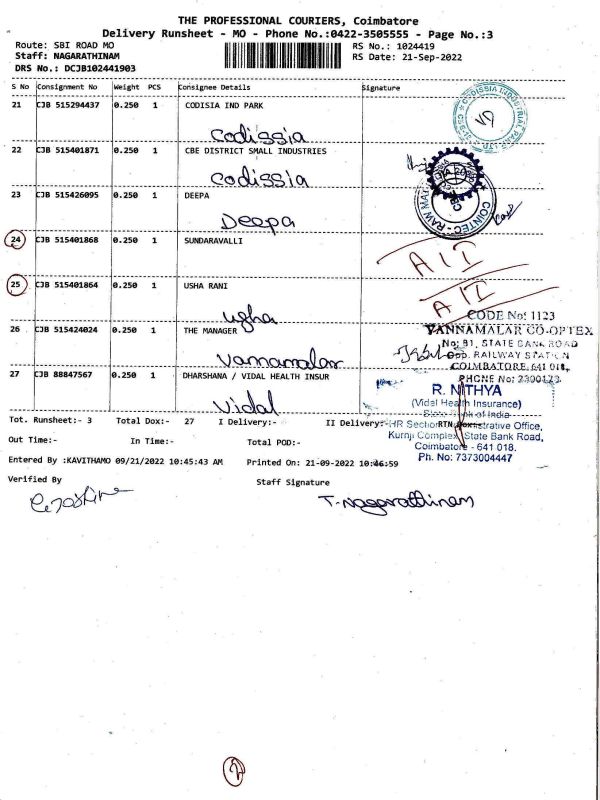 THE PROFESSIONAL COURIERS, Coimbatore
Delivery Runsheet - MO - Phone No.:0422-3505555 - Page No.:3
Route: SBI ROAD MO
RS No.: 1024419
Staff: NAGARATHINAM
RS Date: 21-Sep-2022
DRS No.: DCJB102441903
S No Consignment No Weight PCS Consignee Details Signature
21 CJB 515294437 0.250 1 CODISIA IND PARK
Codissia
22 CJB 515401871 0.250 1 CBE DISTRICT SMALL INDUSTRIES
Codissia
23 CJB 515426095 0.250 1 DEEPA
Deepa
24 CJB 515401868 0.250 1 SUNDARAVALLI
25 CJB 515401864 0.250 1 USHA RANI
Usha
CODE No: 1123
26 CJB 515424024 0.250 1 THE MANAGER
VANNAMALAR CO-OPTEX
No: 91, STATE BANK ROAD
Opp. RAILWAY STATION
Vannamalar
COIMBATORE 641 018.
PHONE No: 2300173
27 CJB 88847567 0.250 1 DHARSHANA / VIDAL HEALTH INSUR
Vidal
R. NITHYA
(Vidal Health Insurance)
State Bank of India
Tot. Runsheet:- 3 Total Dox:- 27 I Delivery:- II Delivery:- RTN
HR Section
Office,
Kurnji Complex, State Bank Road,
Coimbatore - 641 018.
Ph. No: 7373004447
Out Time:- In Time:- Total POD:-
Entered By :KAVITHAMO 09/21/2022 10:45:43 AM Printed On: 21-09-2022 10:46:59
Verified By Staff Signature
T. Nagarathinam